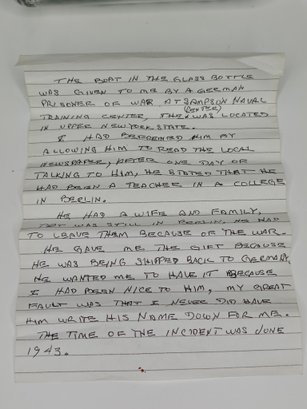 THE BOAT IN THE GLASS BOTTLE
WAS GIVEN TO ME BY A GERMAN
PRISONER OF WAR AT SAMPSON NAVAL
(CENTER)
TRAINING CENTER, THAT WAS LOCATED
IN UPPER NEW YORK STATE.
I HAD BEFRIENDED HIM BY
ALLOWING HIM TO READ THE LOCAL
NEWSPAPER, AFTER ONE DAY OF
TALKING TO HIM, HE STATED THAT HE
HAD BEEN A TEACHER IN A COLLEGE
IN BERLIN.
HE HAS A WIFE AND FAMILY,
THEY WAS STILL IN BERLIN, HE HAD
TO LEAVE THEM BECAUSE OF THE WAR.
HE GAVE ME THE GIFT BECAUSE
HE WAS BEING SHIPPED BACK TO GERMANY
HE WANTED ME TO HAVE IT BECAUSE
I HAD BEEN NICE TO HIM, MY GREAT
FAULT WAS THAT I NEVER DID HAVE
HIM WRITE HIS NAME DOWN FOR ME.
THE TIME OF THE INCIDENT WAS JUNE
1943.